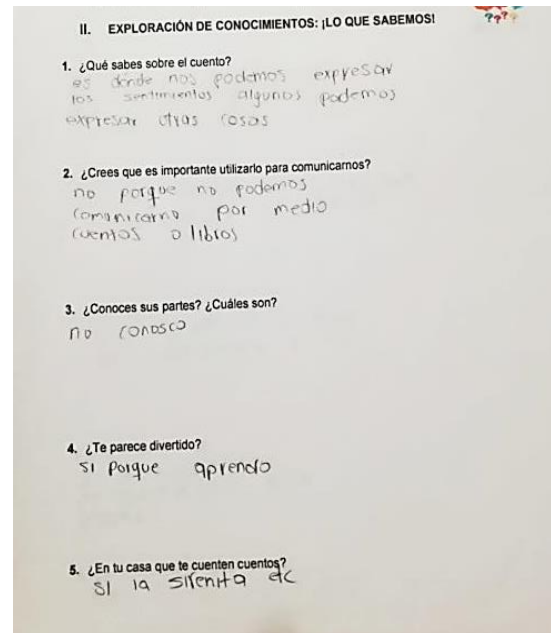 II. EXPLORACIÓN DE CONOCIMIENTOS: ¡LO QUE SABEMOS!
????
1. ¿Qué sabes sobre el cuento?
es donde nos podemos expresar
los sentimientos algunos podemos
expresar otras cosas
2. ¿Crees que es importante utilizarlo para comunicarnos?
no porque no podemos
comunicarno por medio
cuentos o libros
3. ¿Conoces sus partes? ¿Cuáles son?
no conosco
4. ¿Te parece divertido?
si porque aprendo
5. ¿En tu casa que te cuenten cuentos?
si la sirenita etc